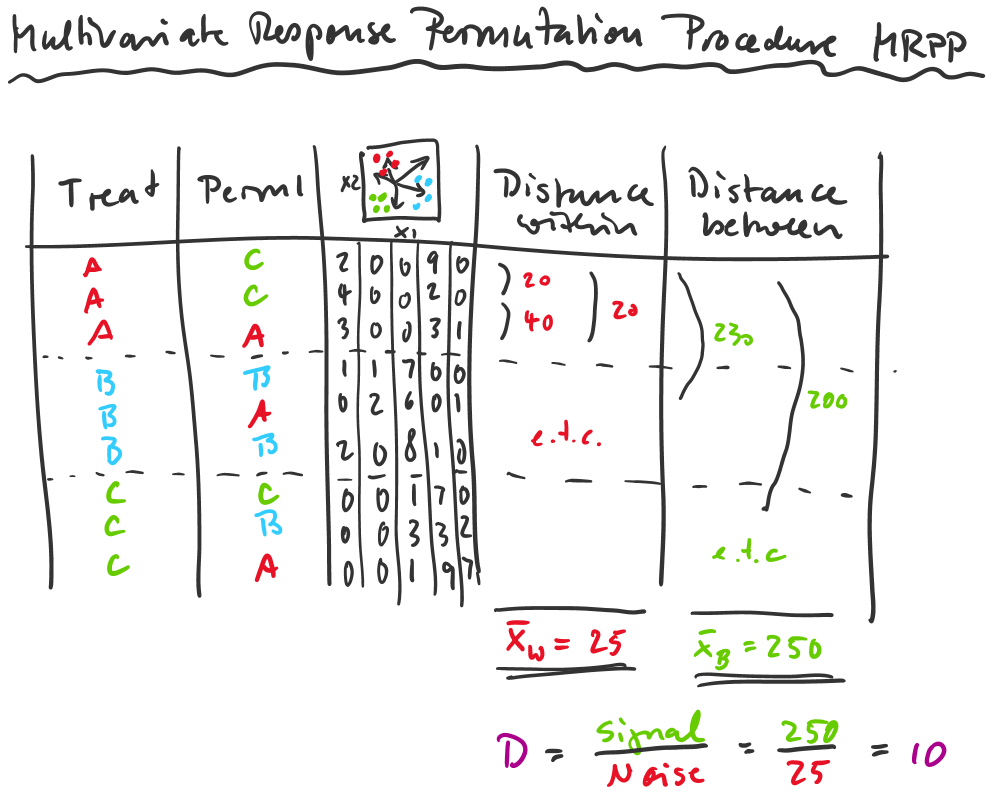 Multivariate Response Permutation Procedure MRPP
Treat Perm1 X2 X1 Distance within Distance between
A C 2 0 0 9 0
A C 4 0 0 2 0
A A 3 0 0 3 1
20
40
20
230
200
B B 1 1 7 0 0
B A 0 2 6 0 1
B B 2 0 8 1 0
e.t.c.
C C 0 0 1 7 0
C B 0 0 3 3 2
C A 0 0 1 9 7
e.t.c
X̄W = 25 X̄B = 250
D = Signal / Noise = 250 / 25 = 10